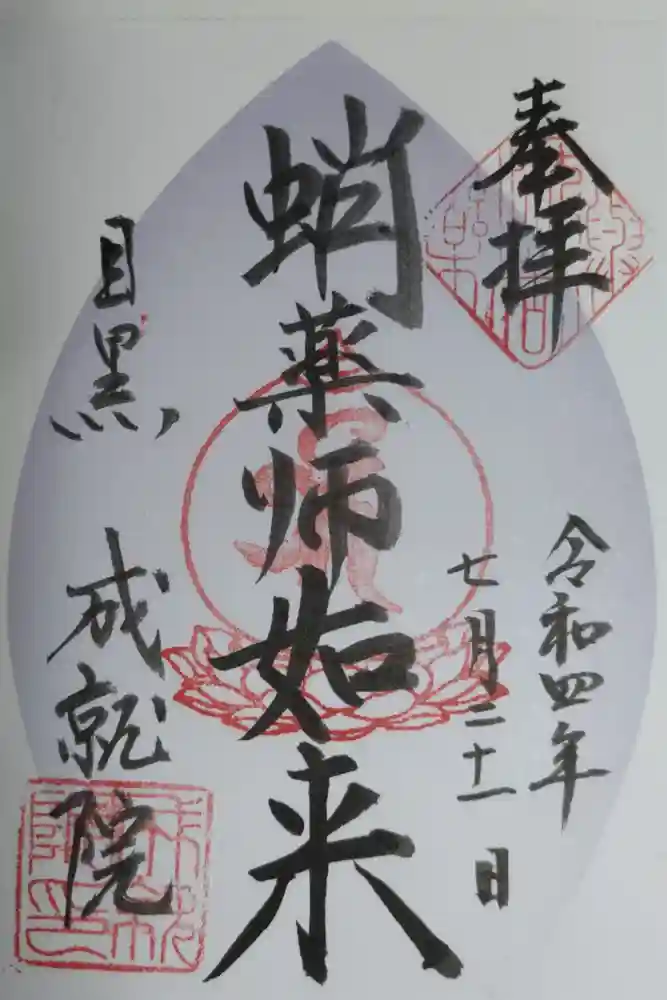 奉拝
令和四年
七月二十一日
蛸薬師如来
目黒
成就院